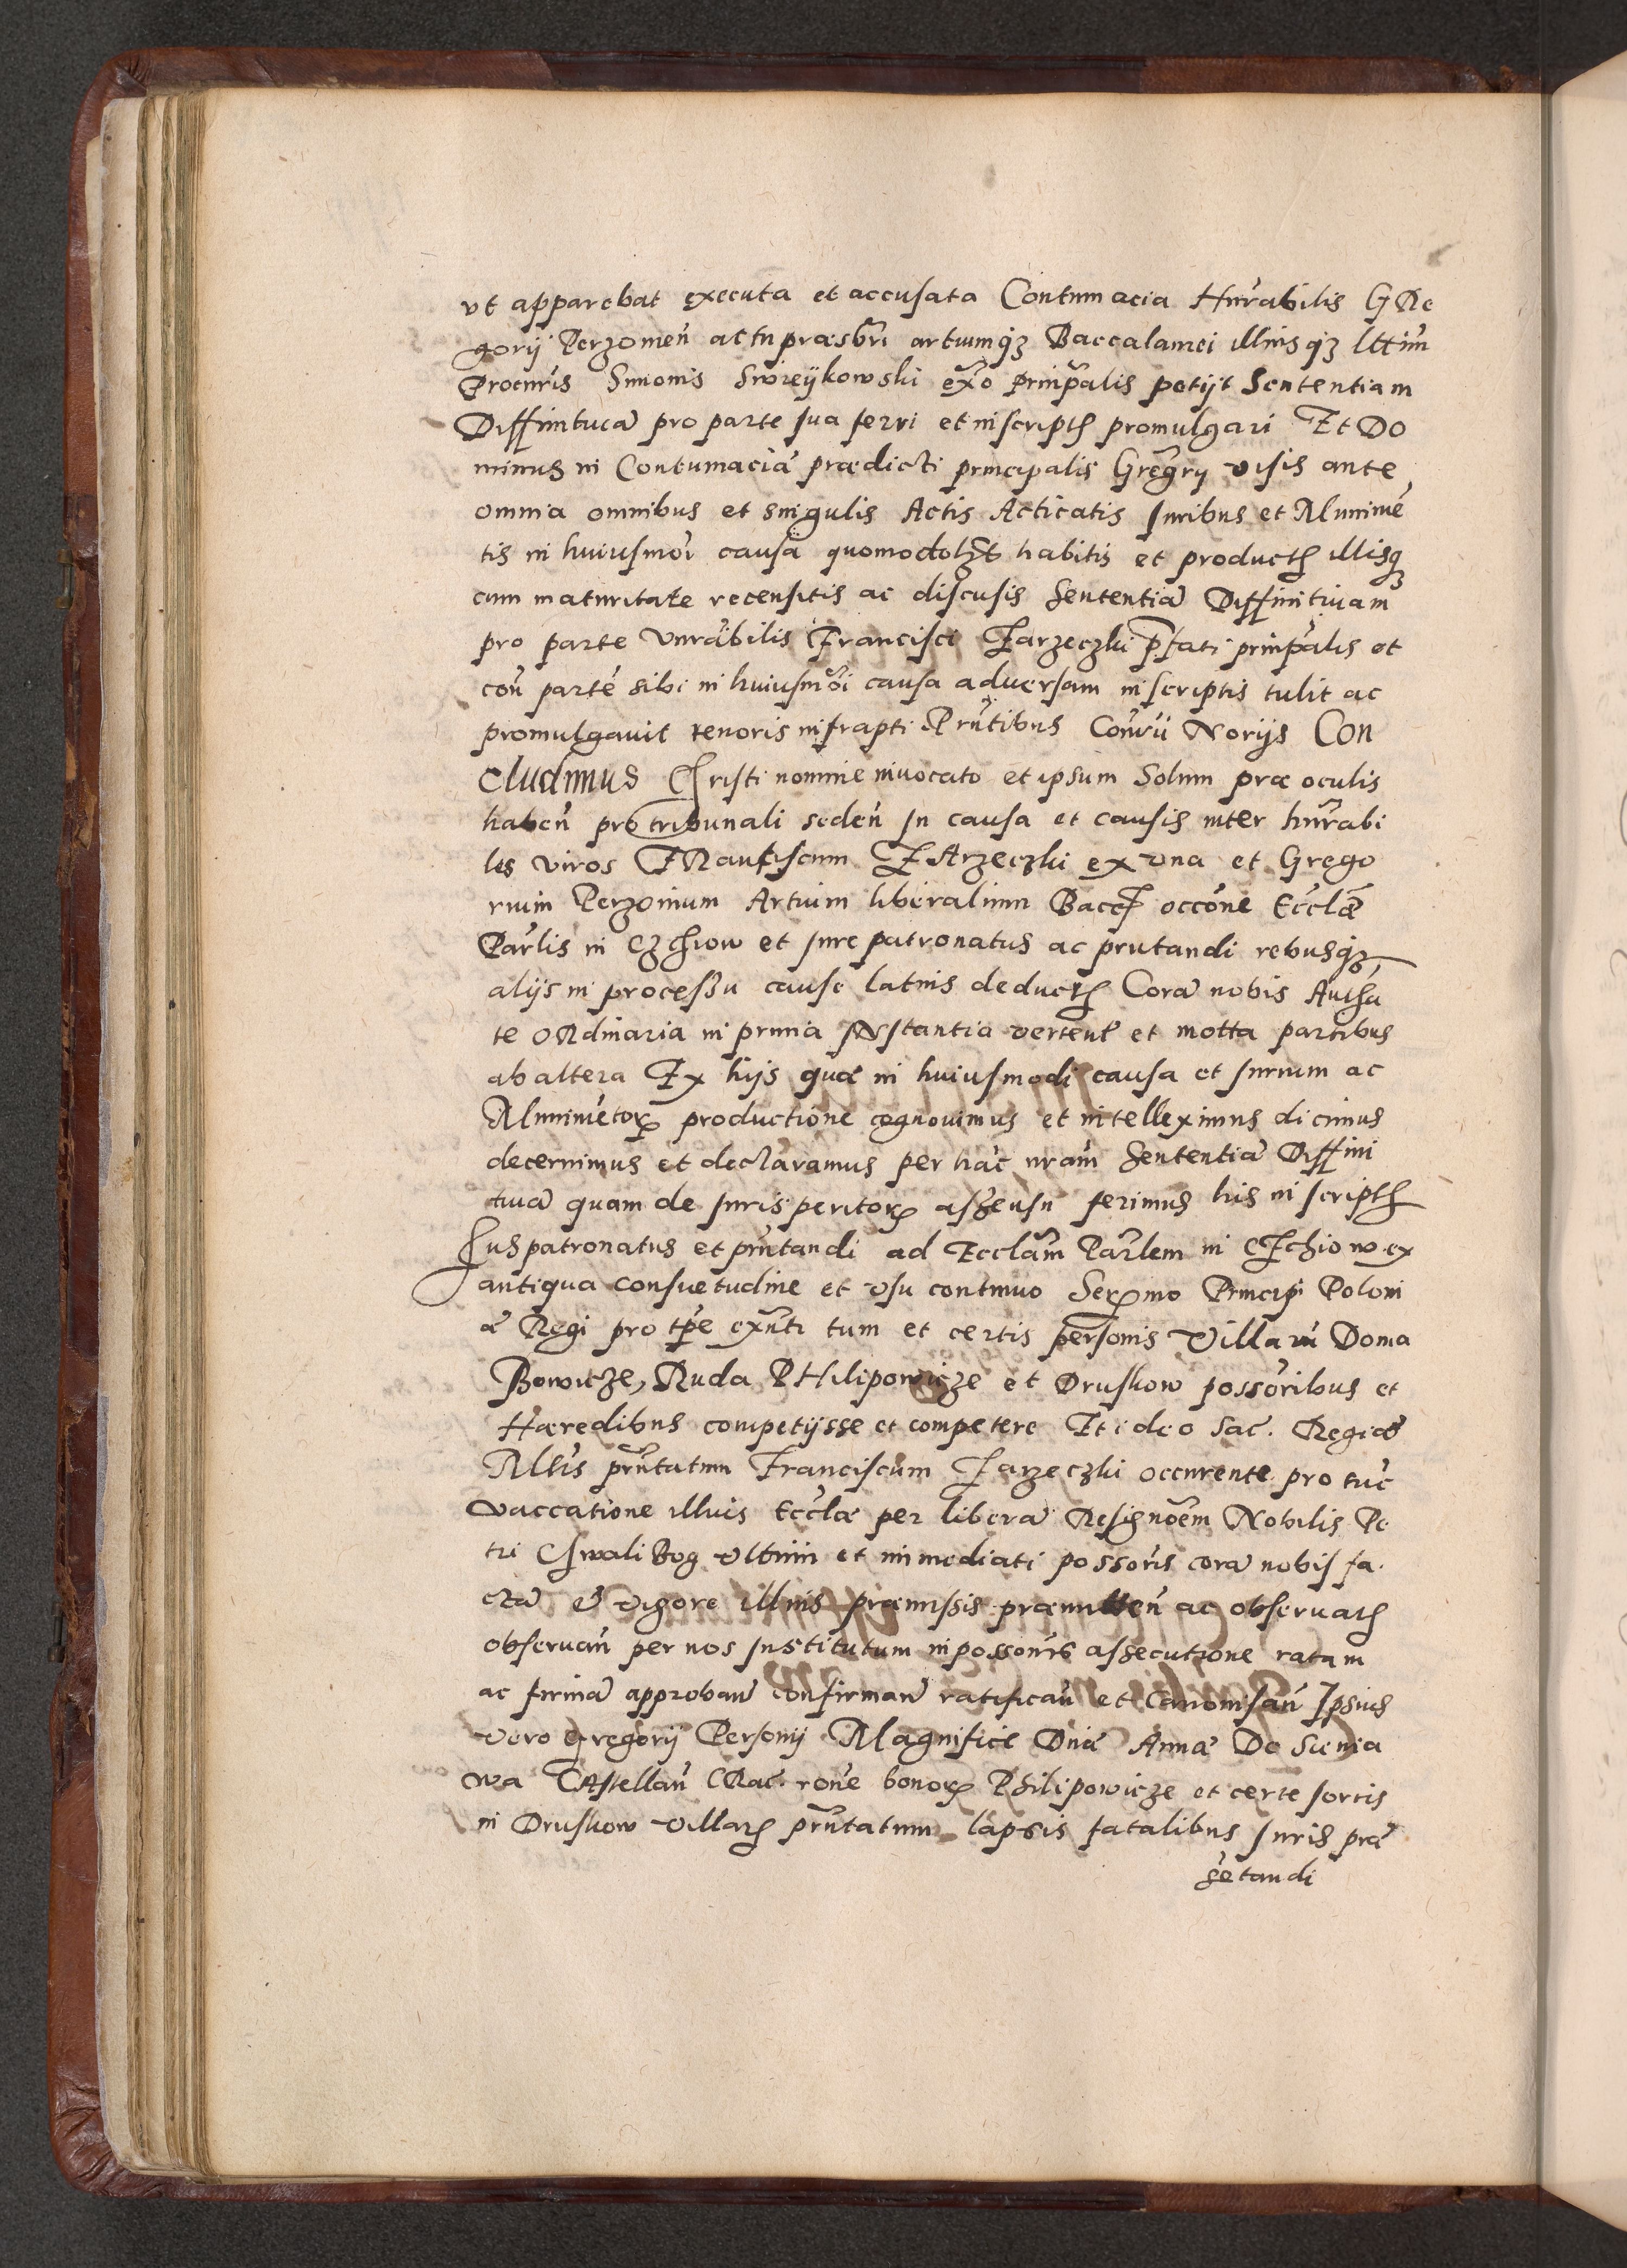 vt apparebat executa et accusata Contumacia Hnrabilis GRe
gorij Perzomen̄ actu praesb̄ri artiumqȝ Baccalaurei illiusqȝ lttim̄
Procuris Simonis Swieijkowski ex̄o prinp̄alis petijt Sententiam
Diffinitiuā pro parte sua ferri et in scriptꝭ promulgari Et Do
minus in Contumaciā praedicti principalis Gregrij visis ante
omnia omnibus et singulis Actis Acticatis Iuribus et Munimē
tis in huiusmōi causa quomodolȝt habitis et productꝭ illisqȝ
cum maturitate recensitis ac discusis Sententiā Diffinitiuam
pro parte Vnrābilis Francisci Jarzeczki p̄fati prinp̄alis et
con̄ partē sibi in huiusmōi causa aduersam in scriptis tulit ac
promulgauit tenoris infrapti Prn̄tibus Conv̄ij Norijs Con
cludimus Christi nomine inuocato et ipsum Solum prae oculis
haben̄ pro tribunali seden̄ In causa et causis inter hnr̄abi
les viros FRanciscum JArzeczki ex vna et Grego
rium Perzonium Artium liberalium Bacc occōne Ecclae
Parlis in Czchow et iure patronatus ac prn̄tandi rebusqȝ
alijs in processu cause latius deductꝭ Corā nobis Autha
te ORdinaria in prima INstantia verten̄ et motta partibus
ab altera Ex hijs quae in huiusmodi causa et Iurium ac
Munimētorꝝ productione cognouimus et intelleximus dicimus
decernimus et declaramus per hāc nrām Sententiā Diffini
tiuā quam de Iurisperitorꝝ assensu ferimus his in scriptꝭ
Ius patronatus et prn̄tandi ad Ecclām Parlem in CZchiow ex
antiqua consuetudine et vsu continuo Serꝰmo Principi Poloni
ae Regi pro tp̄e exn̄ti tum et certis personis Villarū Doma
Bowicze, Ruda PHilipowicze et Druskow possōribus et
Haeredibus competijsse et competere Et ideo Sac. Regiae
Mttis prn̄tatum Franciscum Jarzeczki occurente pro tūc
vaccatione illius Ecclae per liberā Resignōem Nobilis Pe
tri Chwalibog Vltimi et immediati possōris corā nobis fa.
ctā & vigore illius praemissis praemitten̄ ac obseruatꝭ
obseruan̄ per nos Institutum in possonis assecutione ratam
ac firmā approban̄ confirman̄ ratifican̄ et Canonisan̄ Ipsius
vero Gregorij Personij Magnificē Dn̄ae Annae De Sienia
wa CAstellan̄ CRac. rōne bonorꝝ Philipowicze et certe sortis
in Druskow Villarꝭ prn̄tatum lapsis fatalibus Iuris prae
sētandi